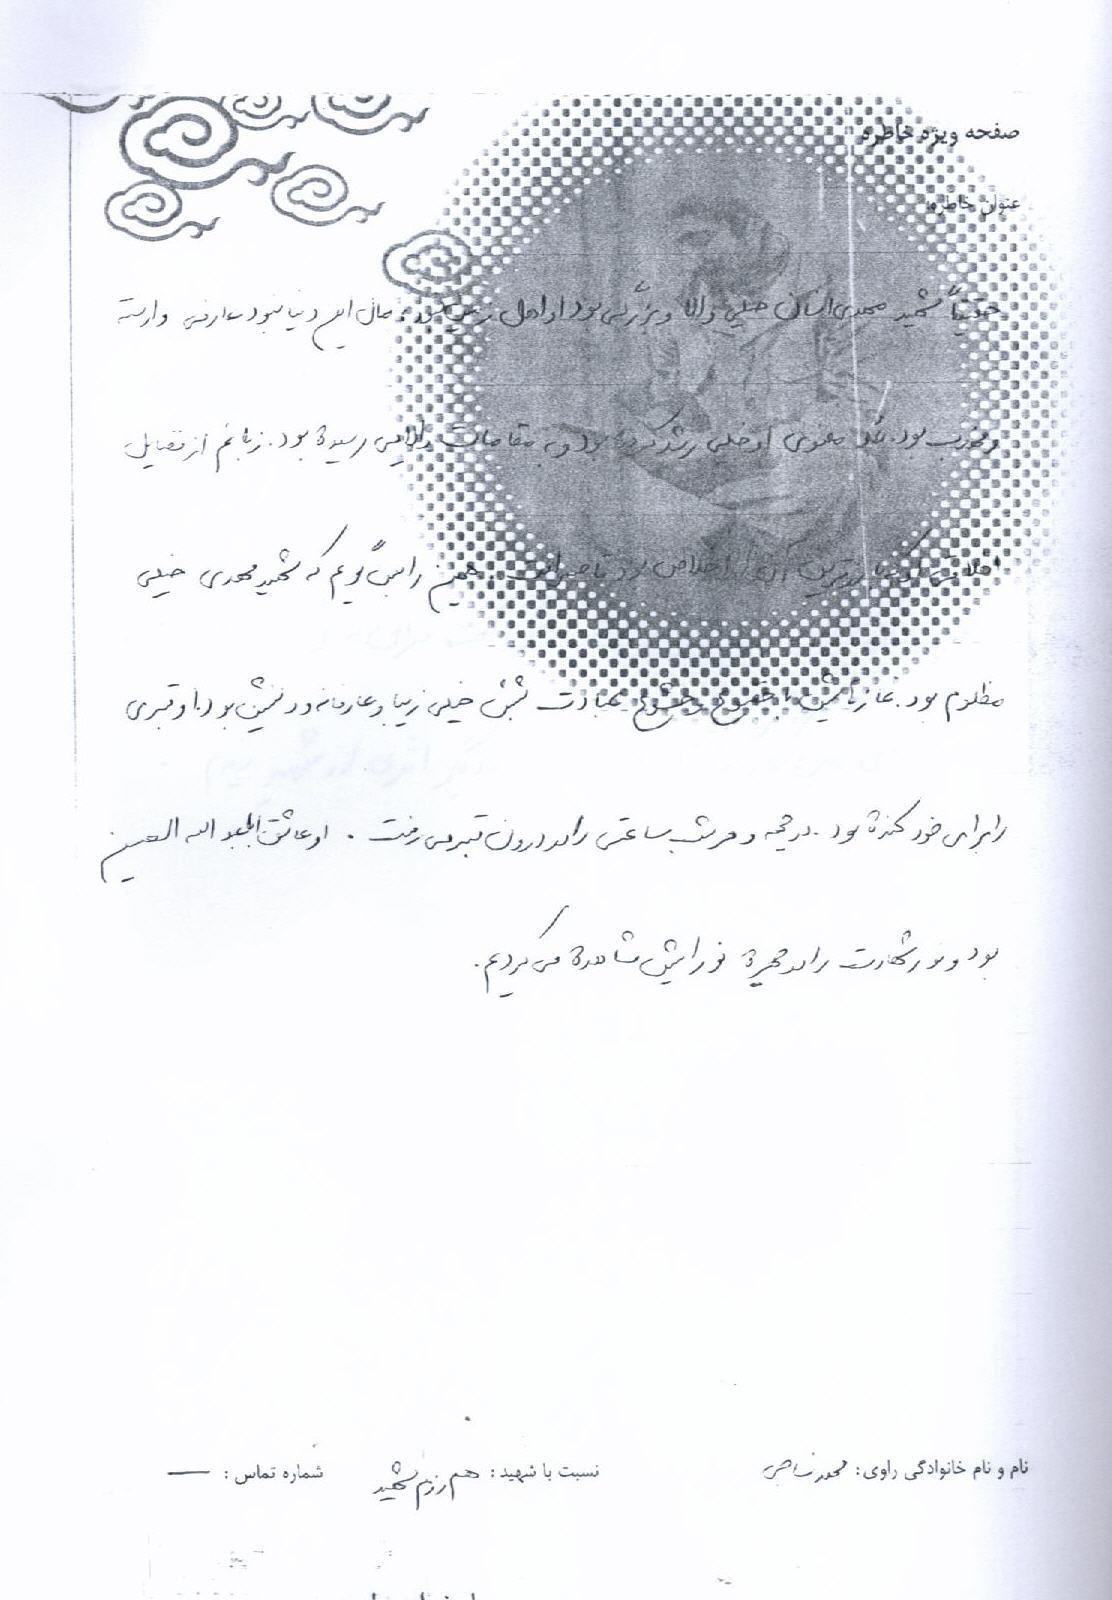 صفحه ویژه خاطره
عنوان خاطره:
حقیقتاً شهید محمدی انسان خیلی والا و بزرگی بود او اهل زمین نبود و مال این دنیا نبود عارفی وارسته
و مهذب بود. بعد معنوی او خیلی رشد کرده بود و به مقامات والایی رسیده بود. زبانم از فضایل
اخلاقی او که بارزترین آن اخلاص بود قاصر است. همین را می گویم که شهید محمدی خیلی
مظلوم بود. نمازهایش با خضوع و خشوع عبادت شبش خیلی زیبا و عارفانه و دلنشین بود. او قبری
را برای خود کنده بود. در جبهه و هر شب ساعتی را در درون قبر می رفت. او عاشق اباعبدالله الحسین
بود و نور شهادت را در چهره نورانیش مشاهده می کردیم.
نام و نام خانوادگی راوی: محمود نساجی
نسبت با شهید: هم رزم شهید
شماره تماس: —